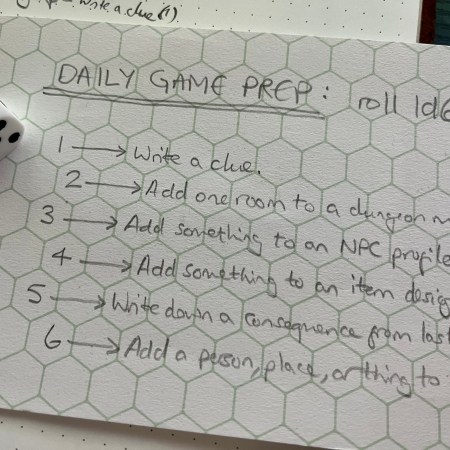 write a clue (1)
DAILY GAME PREP: roll 1d6
1 → Write a clue.
2 → Add one room to a dungeon m
3 → Add something to an NPC profile
4 → Add something to an item desig
5 → Write down a consequence from last
6 → Add a person, place, or thing to